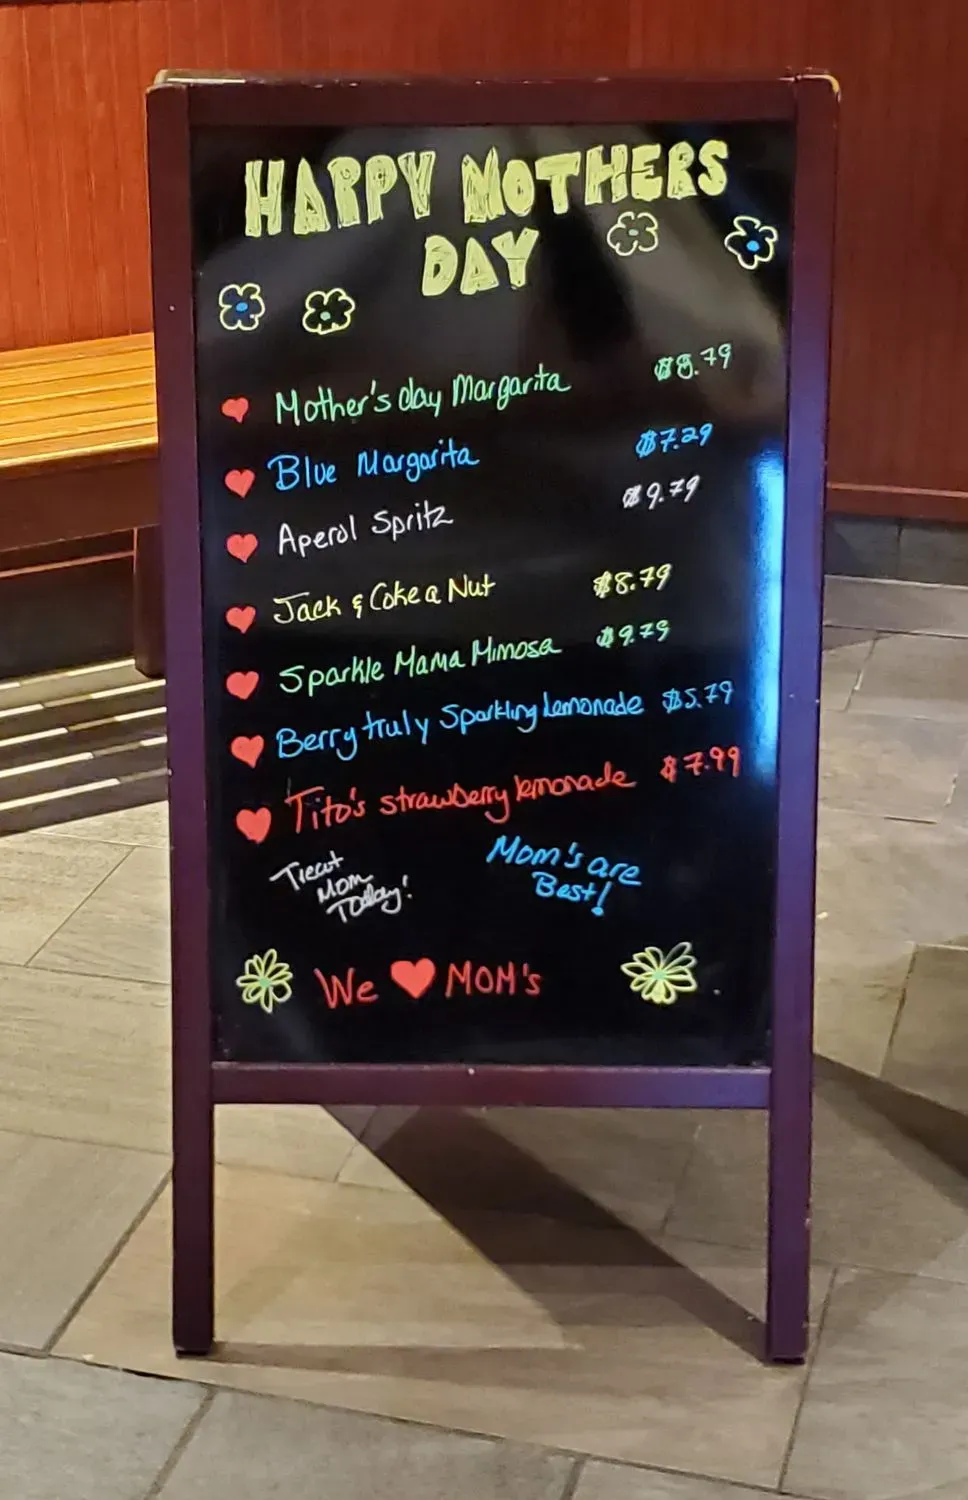 HAPPY MOTHERS
DAY
Mother's day Margarita $8.79
Blue Margarita $7.29
Aperol Spritz $9.79
Jack & Coke a Nut $8.79
Sparkle Mama Mimosa $9.79
Berry truly Sparkling Lemonade $5.79
Tito's strawberry lemonade $7.99
Treat
Mom
Today!
Mom's are
Best!
We ❤ MOM's